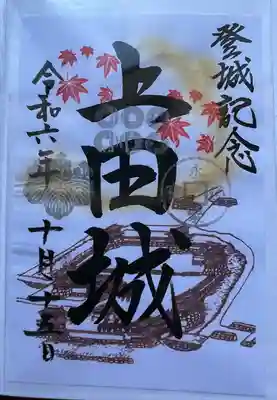 登城記念
上田城
令和六年
十月二十五日